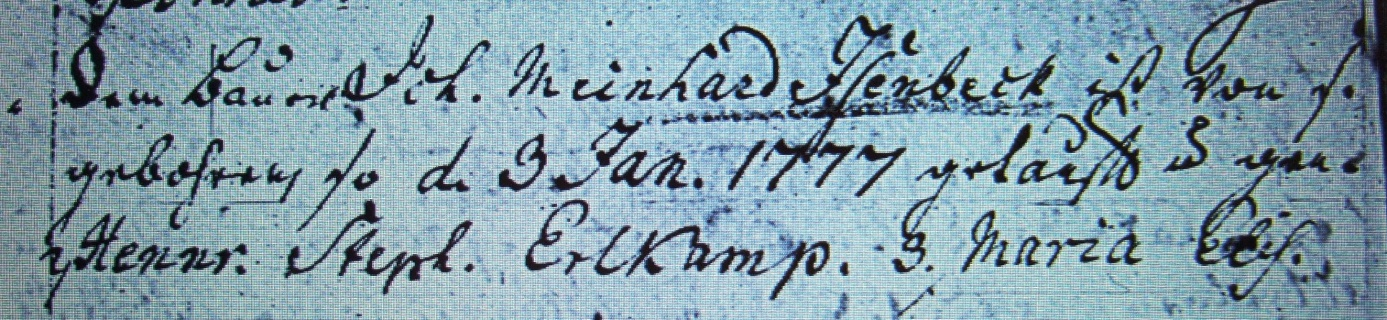 Dem Bauren Joh. Meinhard Isenbeck ist von s.
gebohren so d. 3 Jan. 1777 getaufft u gen:
2 Hennr. Steph. Erlkamp. 3. Maria Elis.